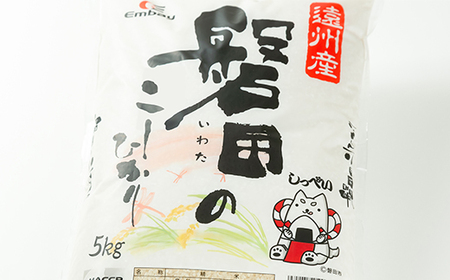 Embay
遠州産
磐田の
いわた
こしひかり
しっぺい
5kg
©磐田市